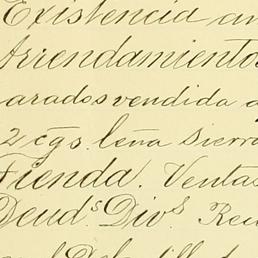 Existencia an
Arrendamientos
arados vendida a
2 cgs. leña sierra
Tienda. Ventas
Deud.s Div.s Rec